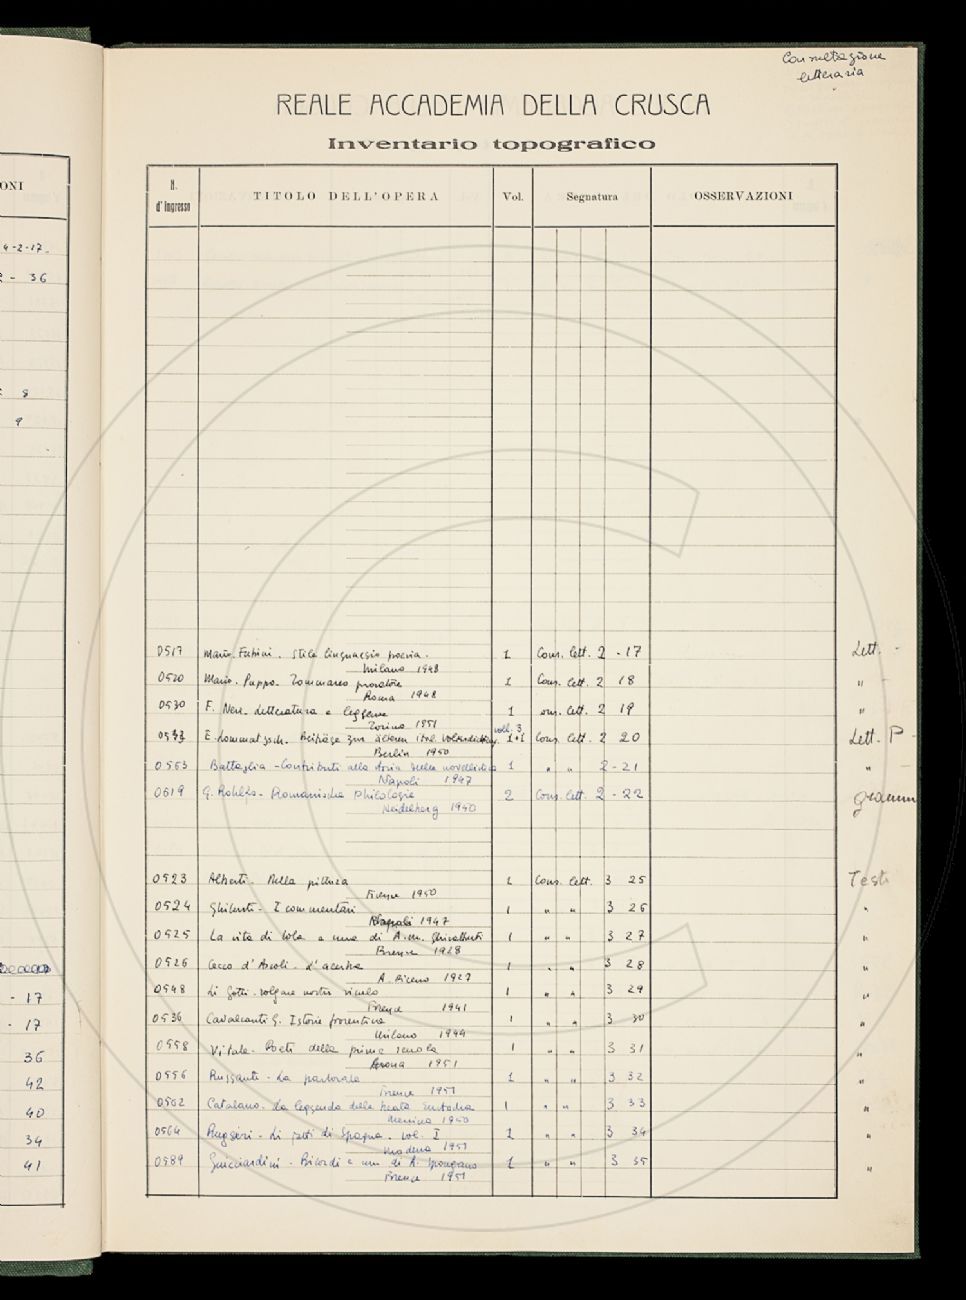 Consultazione
letteraria
REALE ACCADEMIA DELLA CRUSCA
Inventario topografico
ONI
N. d'Ingresso TITOLO DELL'OPERA Vol. Segnatura OSSERVAZIONI
4-2-17.
- 36
8
9
- 17
- 17
36
42
40
34
41
0517 Mario Fubini. Stile linguaggio poesia. 1 Cons. lett. 2 - 17 Lett. -
Milano 1948
0520 Mario Puppo. Tommaseo prosatore 1 Cons. lett. 2 18 "
Roma 1948
0530 F. Neri. Letteratura e leggende 1 ons. lett. 2 19 "
Torino 1951
voll. 3
0533 E. Lommatzsch. Beiträge zur älteren ital. Volksdichtung. 1+1 Cons. lett. 2 20 Lett. P -
Berlin 1950
0563 Battaglia - Contributi alla storia della novellistica 1 " " 2-21 "
Napoli 1947
0619 G. Rohlfs - Romanische Philologie 2 Cons. lett. 2 - 22 gramm
Heidelberg 1950
0523 Alberti. Della pittura 1 Cons. lett. 3 25 Testi
Firenze 1950
0524 Ghiberti - I commentari 1 " " 3 26 "
Napoli 1947
0525 La vita di Cola a cura di A. M. Ghisalberti 1 " " 3 27 "
Firenze 1928
0526 Cecco d'Ascoli. L'acerba 1 " " 3 28 "
A. Piceno 1927
0548 Li Gotti. Volgare nostro siculo 1 " " 3 29 "
Firenze 1941
0536 Cavalcanti G. Istorie fiorentine 1 " " 3 30 "
Milano 1944
0558 Vitale - Poeti della prima scuola 1 " " 3 31 "
1951
0556 Russanti - La pastorale 1 " " 3 32 "
Firenze 1951
0562 Catalano. La leggenda della beata Eustochia 1 " " 3 33 "
Messina 1950
0564 Ruggieri - Li fatti di Spagna. vol. I 1 " " 3 34 "
Modena 1951
0589 Guicciardini - Ricordi a cura di R. Spongano 1 " " 3 35 "
Firenze 1951